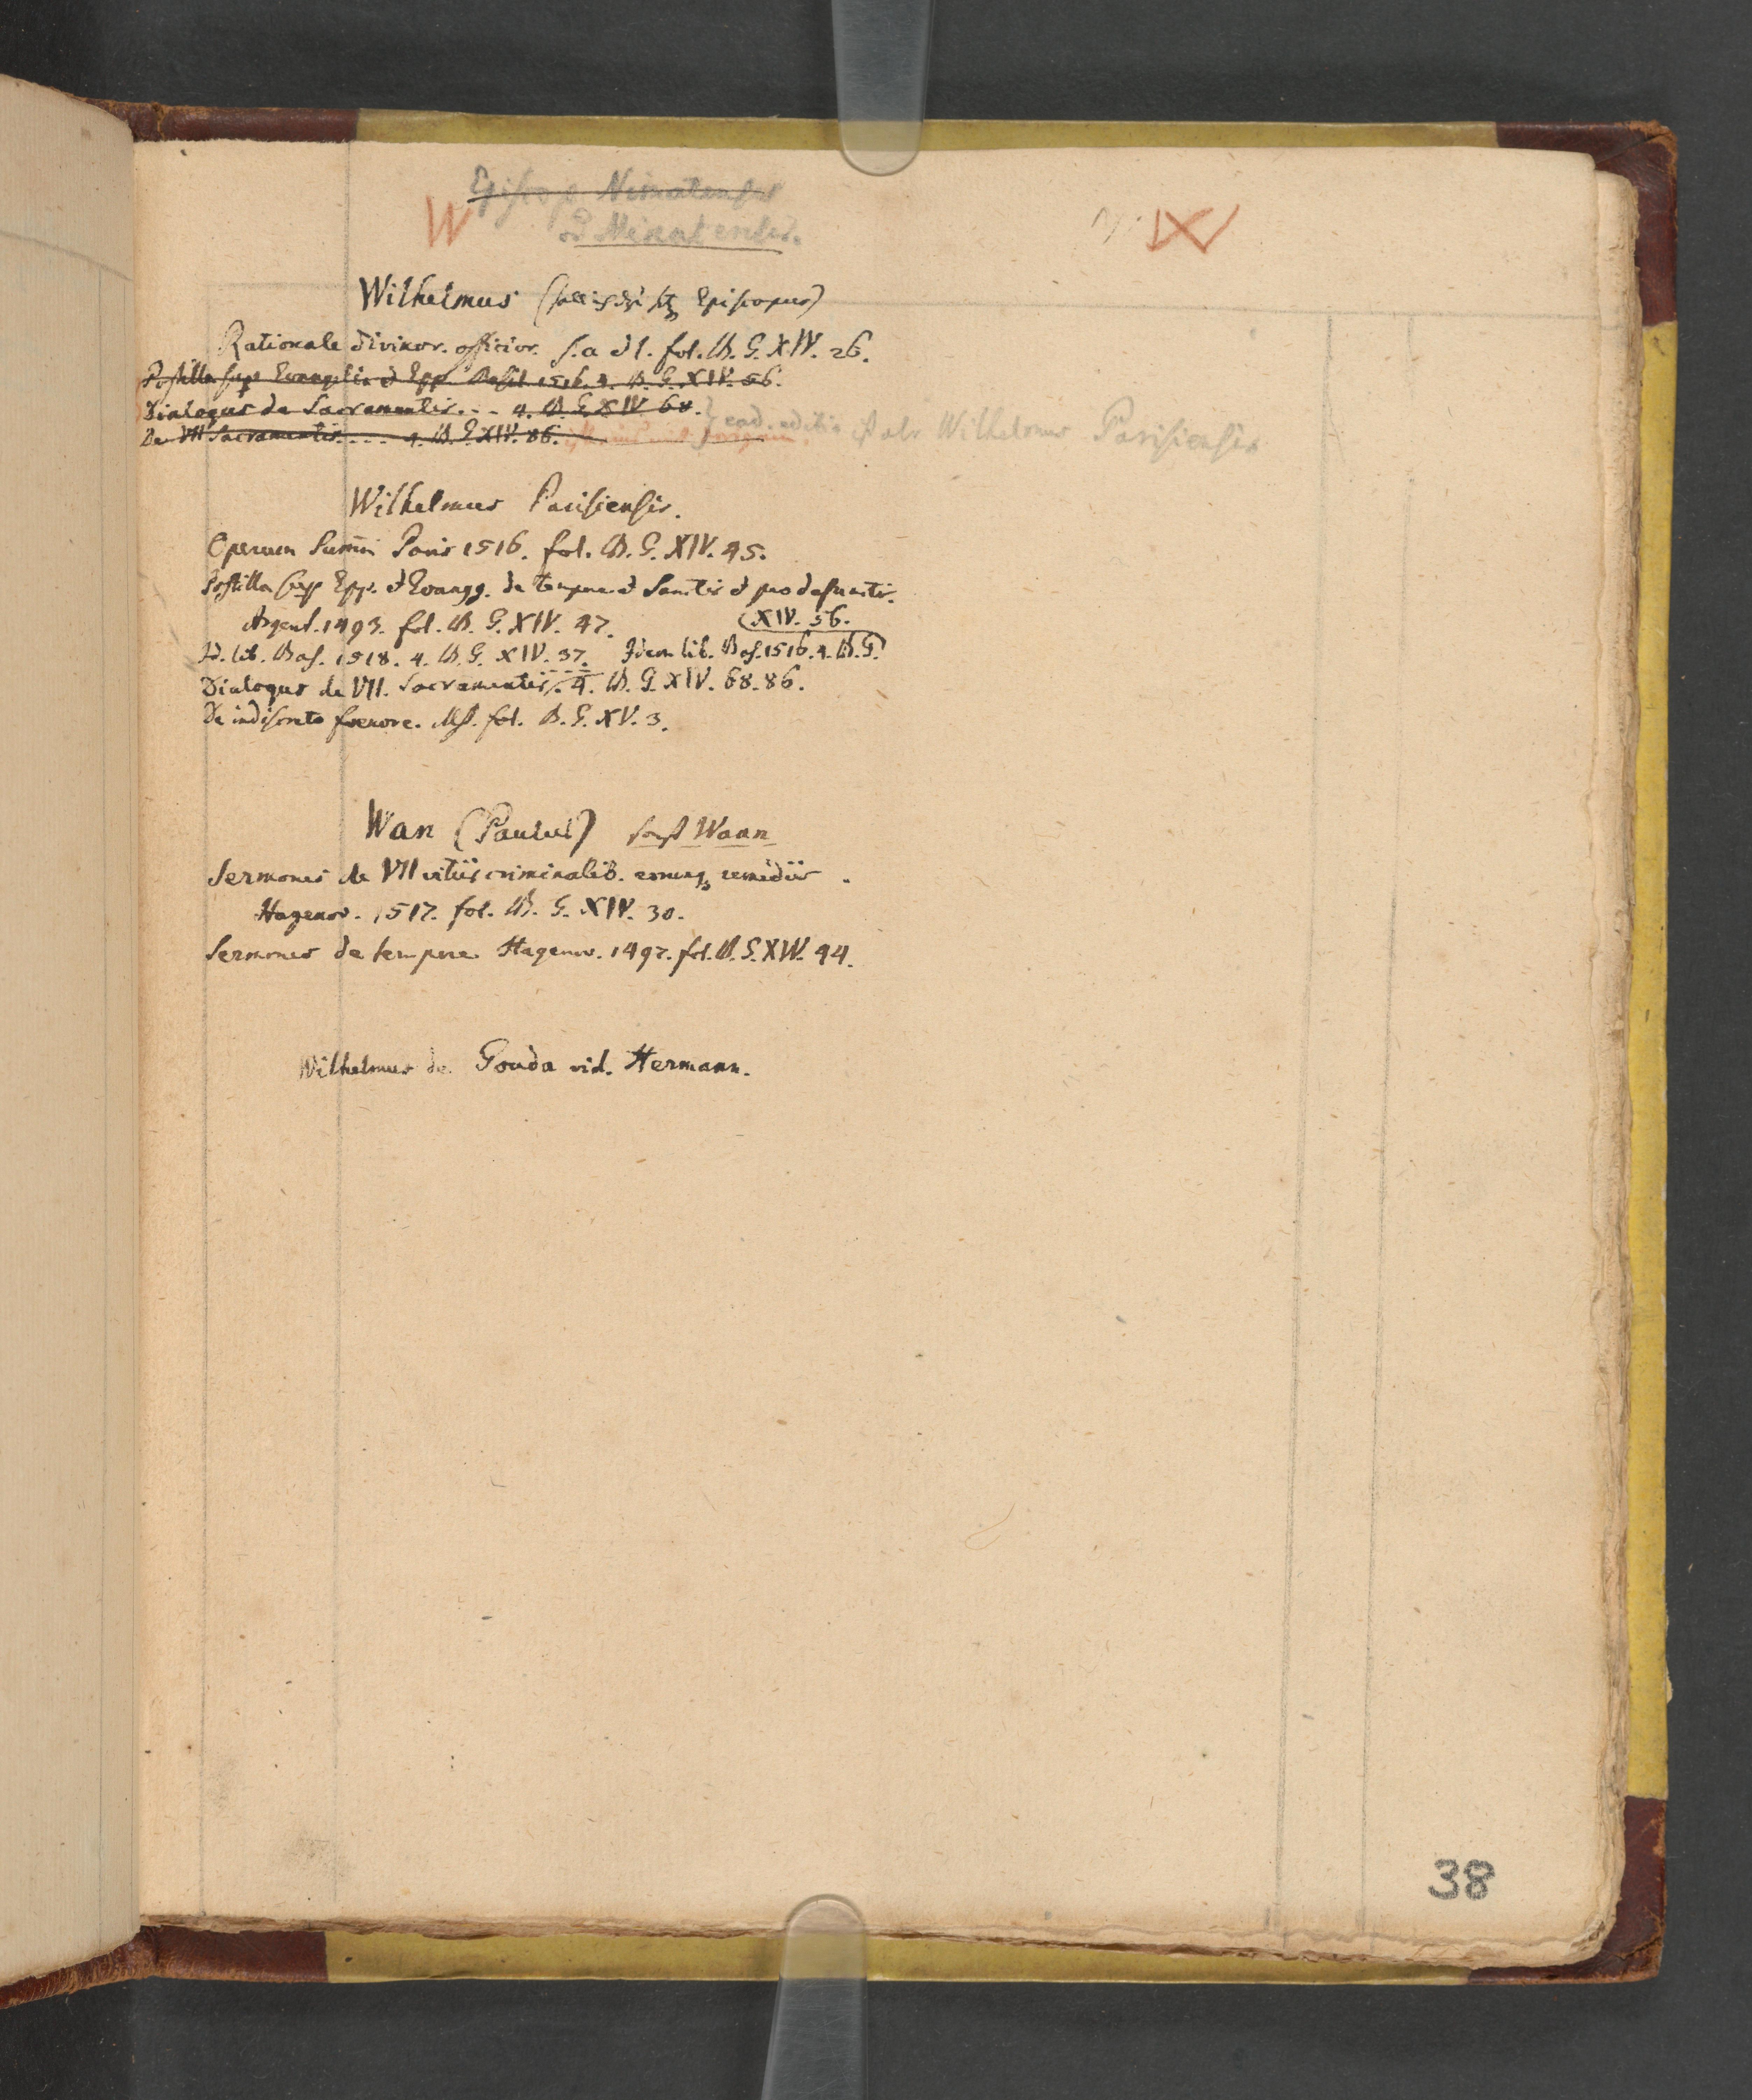 Episcop. Nimatensis
W
od Mimatensis.
W
Wilhelmus ( Episcopus)
Rationale divinor. officior. s. a et l. fol. B. G. XIV. 26.
Postilla sup Evangelia et Epp. Basil 1516. 4. B. G. XIV. 56.
Dialogus de Sacramentis. - - 4. B. G. XIV 68.
ead. editio Wilhelmus Parisiensis
De VII Sacramentis. - - - 4. B. G. XIV. 86.
Wilhelmus Parisiensis.
Operum Summ Paris 1516. fol. B. G. XIV. 45.
Postilla sup Epp. et Evangg. de tempore et Sanctis et pro defunctis.
Argent. 1493. fol. B. G. XIV. 47.
(XIV. 56.
Id. lib. Bas. 1518. 4. B. G. XIV. 37. Idem lib. Bas. 1516. 4. B. G.
Dialogus de VII. Sacramentis. 4. B. G. XIV. 68. 86.
De indiscreto foenore. Mst. fol. B. G. XV. 3.
Wan (Paulus) sonst Waan
Sermones de VII vitiis criminalib. eorumq remediis.
Hagenov. 1517. fol. B. G. XIV. 30.
Sermones de tempore Hagenov. 1497. fol. B. G. XIV. 44.
Wilhelmus de Gouda vid. Hermann.
38